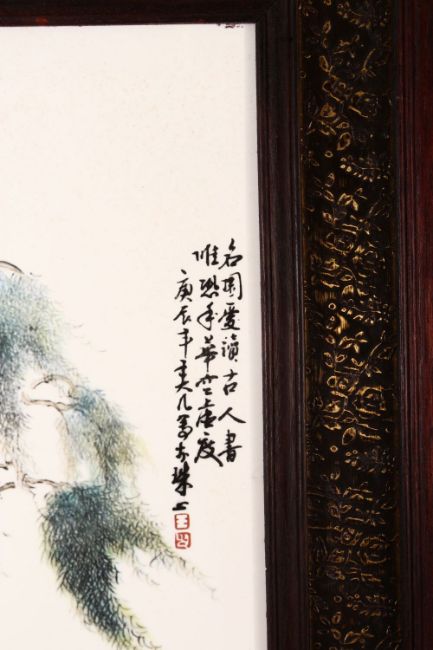 名園愛讀古人書
唯恐年華空虛度
庚辰年王大凡寫於珠山